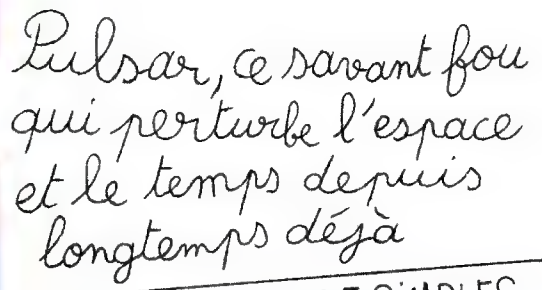 Pulsar, ce savant fou
qui perturbe l'espace
et le temps depuis
longtemps déjà